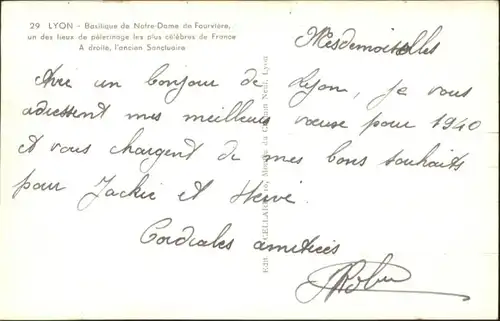 29 LYON - Basilique de Notre-Dame de Fourvière,
un des lieux de pèlerinage les plus célèbres de France
A droite, l'ancien Sanctuaire
Mesdemoiselles
Avec un bonjour de Lyon, je vous
adressent mes meilleurs voeux pour 1940
et vous chargent de mes bons souhaits
pour Jackie et Hervé.
Cordiales amitiés